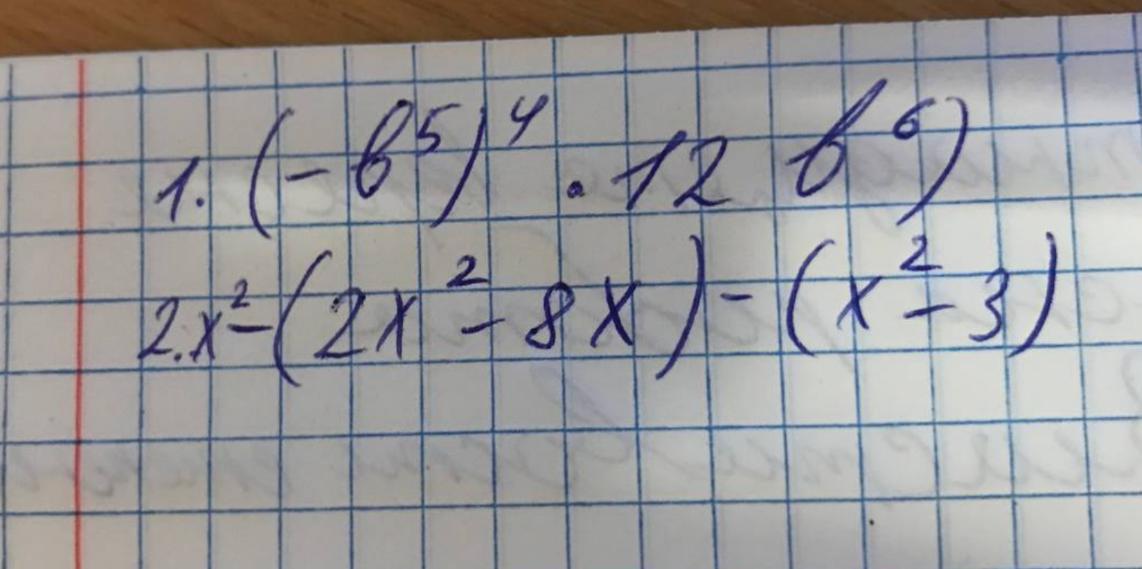 1. (-b⁵)⁴ · 12 b⁶)
2. x² - (2x² - 8x) - (x² - 3)